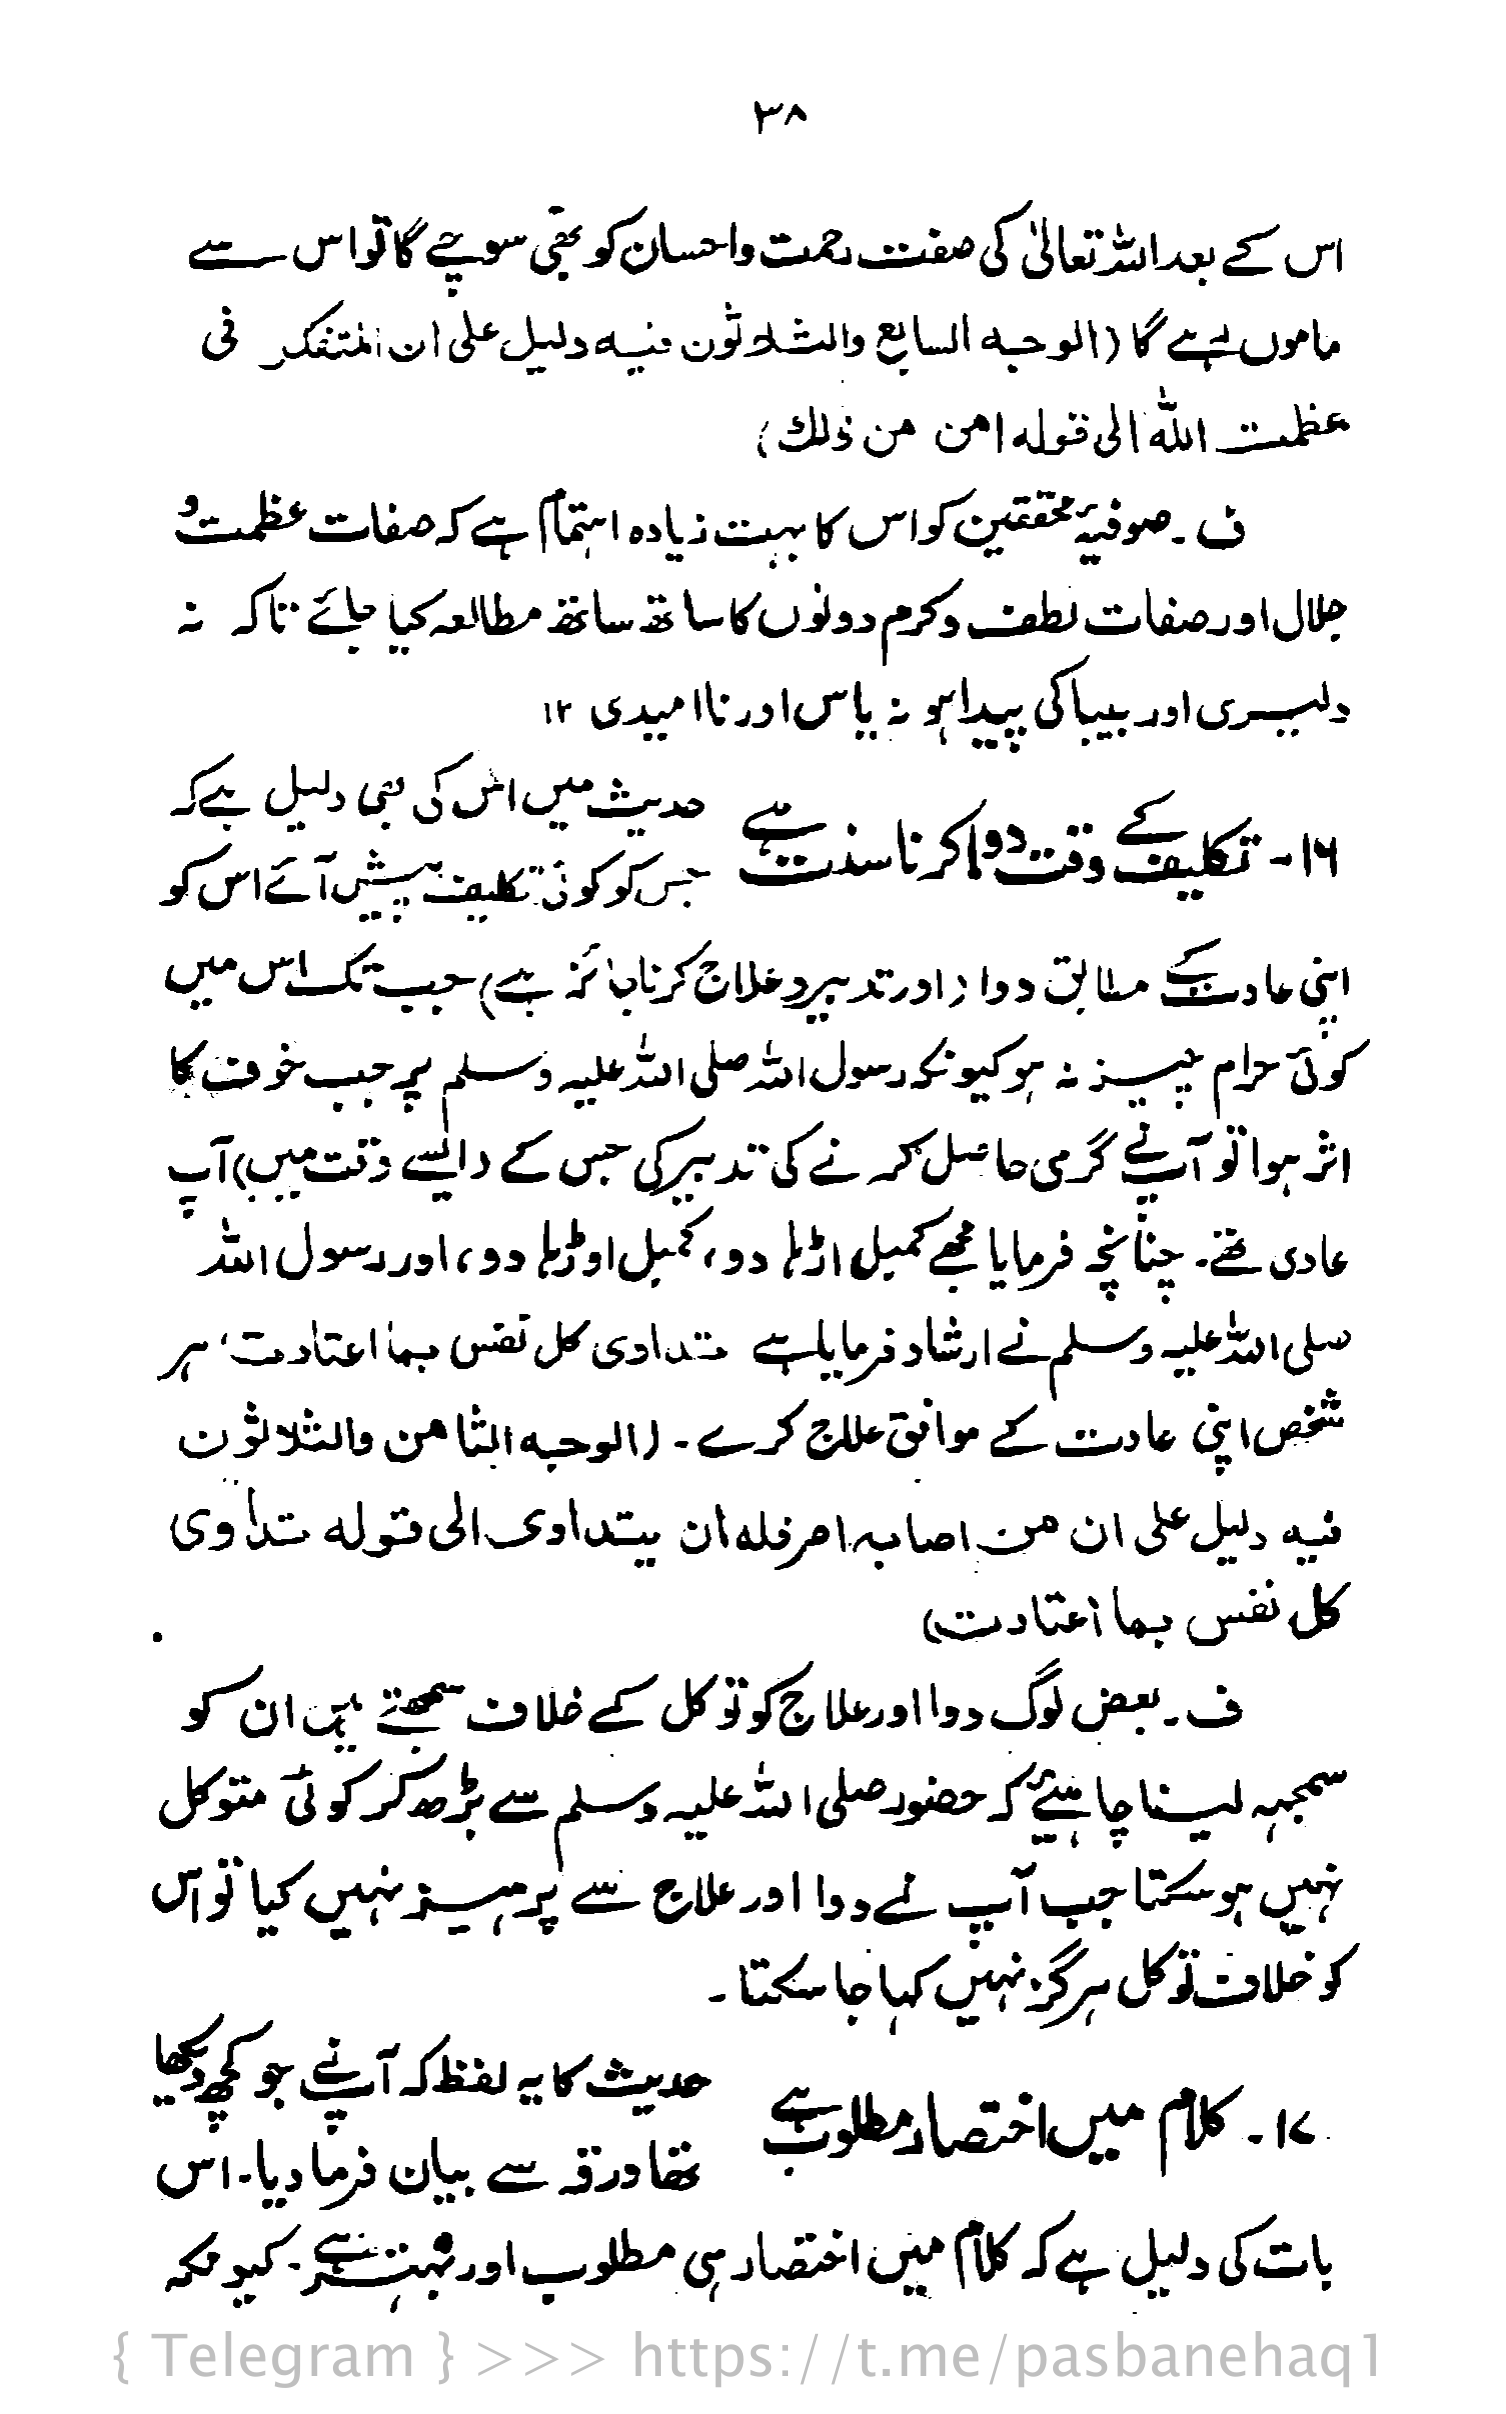 ۳۸
اس کے بعد اللہ تعالیٰ کی صفت رحمت واحسان کو بھی سوچے گا تو اس سے
ماموں رہے گا (الوجہ السابع والثلاثون فیہ دلیل علی ان المتفکر فی
عظمت اللہ الی قولہ امن من ذلك)
ف۔ صوفیۂ محققین کو اس کا بہت زیادہ اہتمام ہے کہ صفات عظمت و
جلال اور صفات لطف وکرم دونوں کا ساتھ ساتھ مطالعہ کیا جائے تاکہ نہ
دلیری اور بیباکی پیدا ہو نہ یاس اور ناامیدی ۱۲
۱۶- تکلیف کے وقت دوا کرنا سنت ہے
حدیث میں اس کی بھی دلیل ہے کہ
جس کو کوئی تکلیف پیش آئے اس کو
اپنی عادت کے مطابق دوا (اور تدبیر و علاج کرنا جائز ہے) جب تک اس میں
کوئی حرام چیز نہ ہو کیونکہ رسول اللہ صلی اللہ علیہ وسلم پر جب خوف کا
اثر ہوا تو آپ نے گرمی حاصل کرنے کی تدبیر کی جس کے (ایسے وقت میں) آپ
عادی تھے۔ چنانچہ فرمایا مجھے کمبل اڑہا دو، کمبل اوڑہا دو، اور رسول اللہ
صلی اللہ علیہ وسلم نے ارشاد فرمایا ہے تداوی کل نفس بما اعتادت، ہر
شخص اپنی عادت کے موافق علاج کرے۔ (الوجہ الثامن والثلاثون
فیہ دلیل علی ان من اصابہ امر فلہ ان یتداوی الی قولہ تداوی
کل نفس بما اعتادت)
ف۔ بعض لوگ دوا اور علاج کو توکل کے خلاف سمجھتے ہیں ان کو
سمجھ لینا چاہئیے کہ حضور صلی اللہ علیہ وسلم سے بڑھ کر کوئی متوکل
نہیں ہو سکتا جب آپ نے دوا اور علاج سے پرہیز نہیں کیا تو اس
کو خلاف توکل ہرگز نہیں کہا جا سکتا۔
۱۷۔ کلام میں اختصار مطلوب ہے
حدیث کا یہ لفظ کہ آپ نے جو کچھ دیکھا
تھا ورقہ سے بیان فرما دیا۔ اس
بات کی دلیل ہے کہ کلام میں اختصار ہی مطلوب اور بہتر ہے۔ کیونکہ
{ Telegram } >>> https://t.me/pasbanehaq1